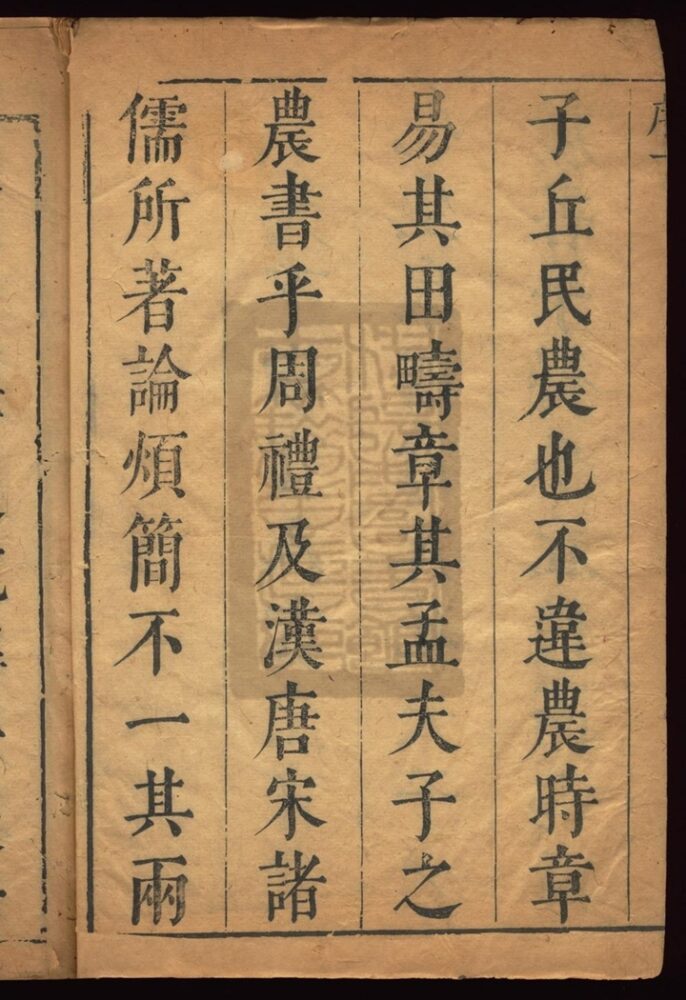 子丘民農也不違農時章
易其田疇章其孟夫子之
農書乎周禮及漢唐宋諸
儒所著論煩簡不一其兩